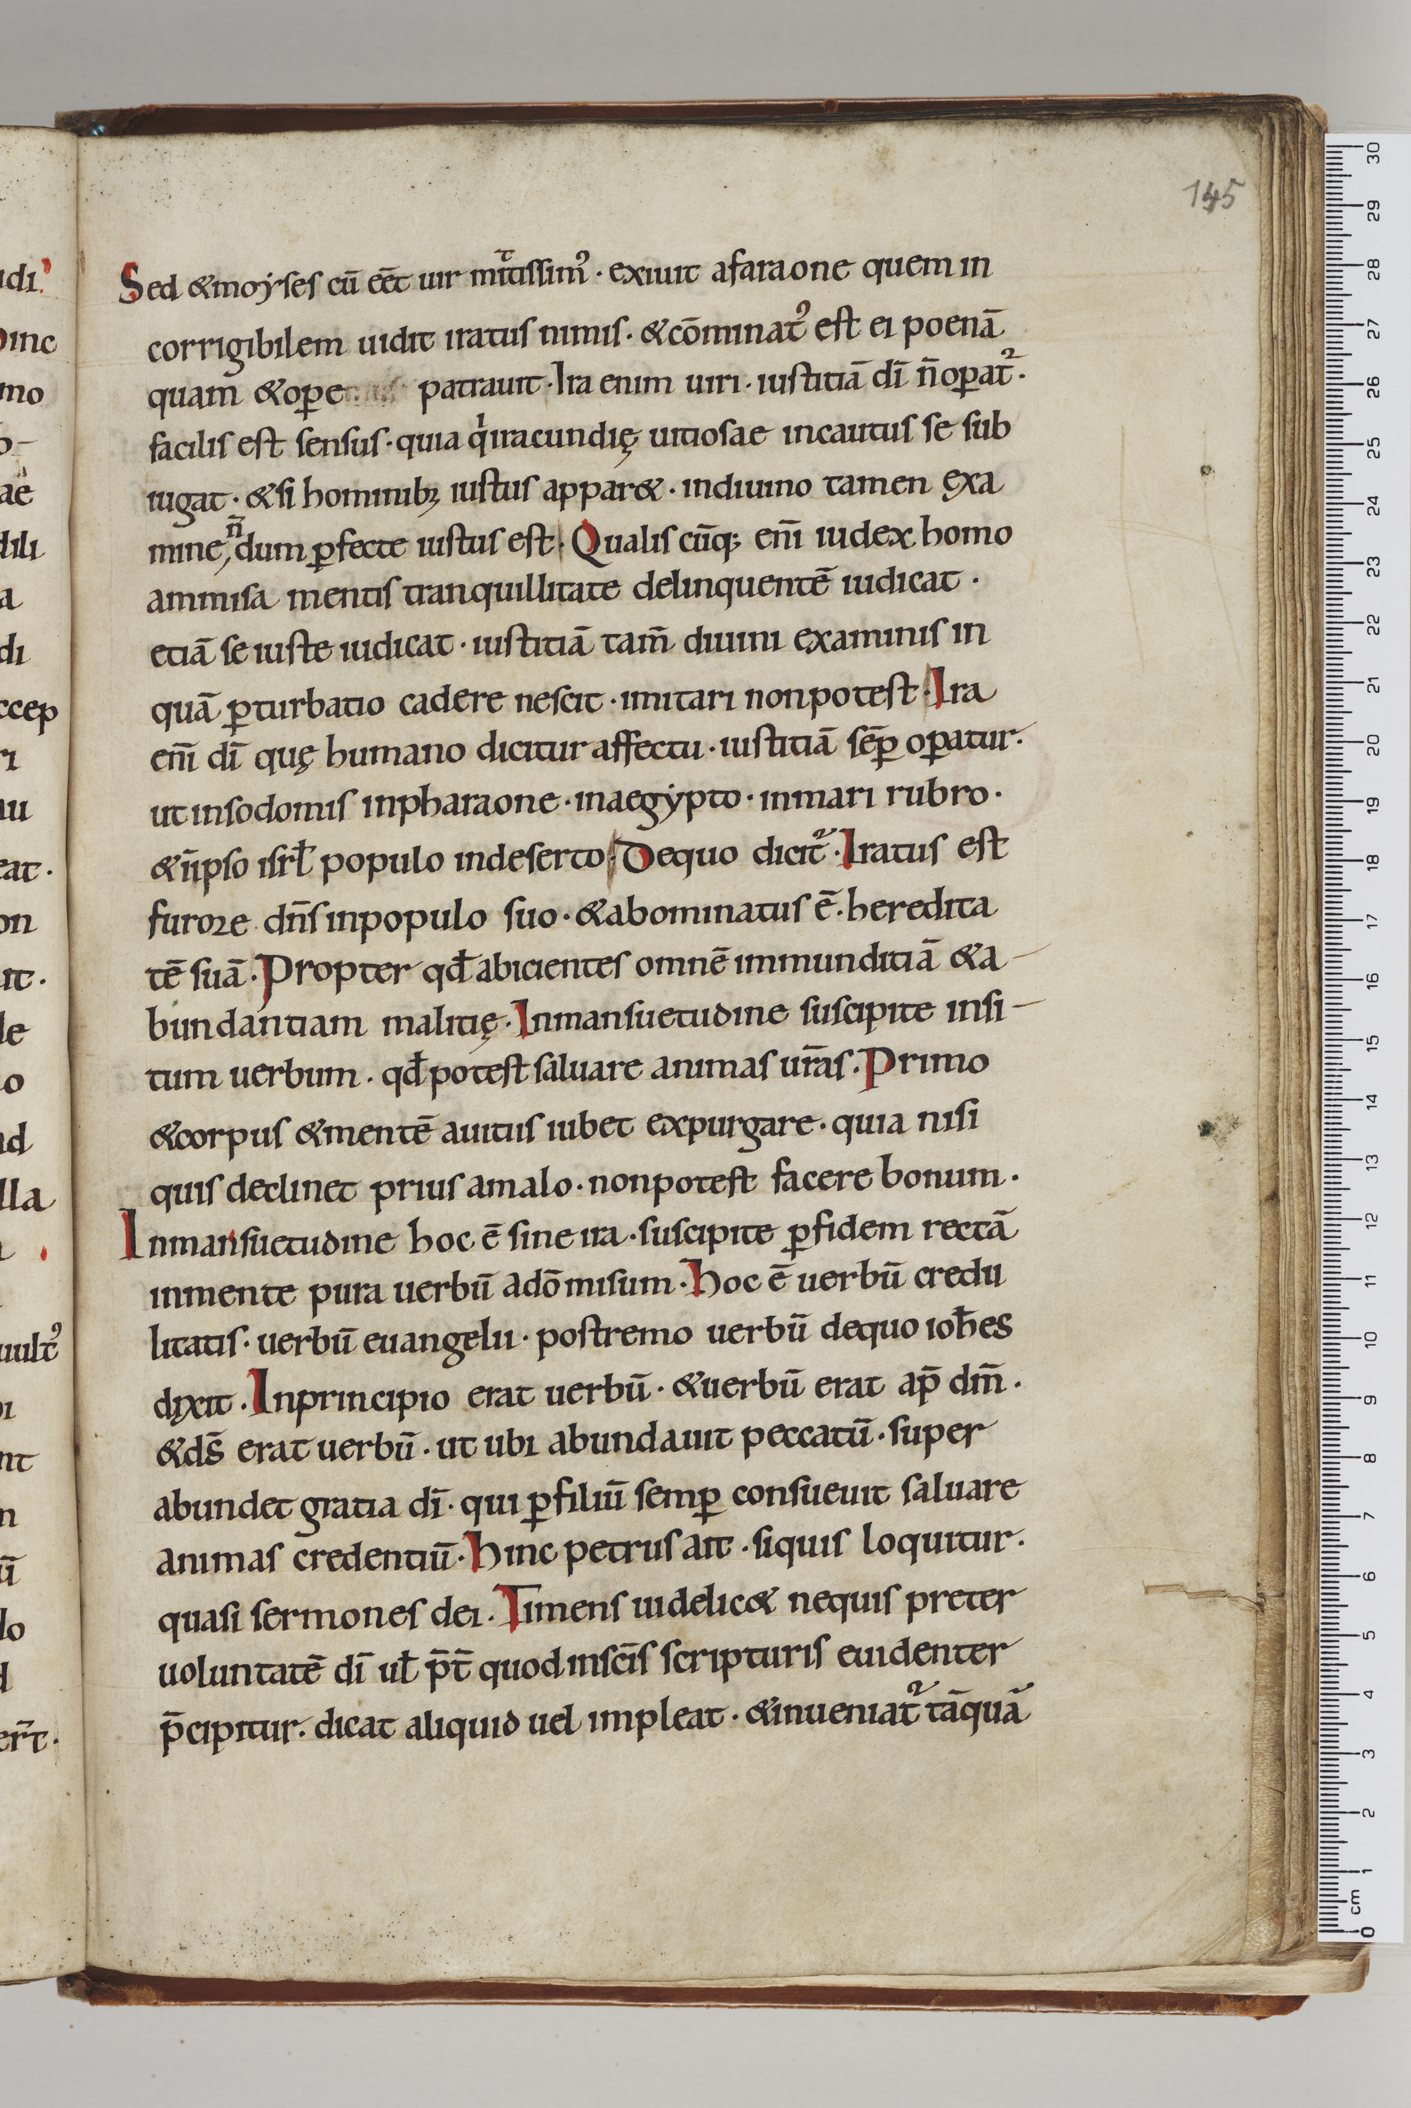 145
Sed &moẏses cū eēt uir mitissimꝰ · exiuit afaraone quem in
corrigibilem uidit iratus nimis · &cōminatꝰ est ei poenā
quam &ope patrauit · Ira enim uiri · iustitiā dī n̄oꝑat᷑ ·
facilis est sensus · quia qͥiracundię uitiosae incautus se sub
iugat · &si hominibꝫ iustus appar& · indiuino tamen exa
mine, n̄ dum ꝑfecte iustus est · Qualis cūq; enī iudex homo
ammisa mentis tranquillitate delinquentē iudicat ·
etiā se iuste iudicat · iustitiā tam̄ diuini examinis in
quā ꝑturbatio cadere nescit · imitari nonpotest · Ira
enī dī quę humano dicitur affectu · iustitiā sēꝑ oꝑatur ·
ut insodomis inpharaone · inaegẏpto · inmari rubro ·
&iīpso isrł populo indeserto · Dequo dicit᷑ · Iratus est
furore dn̄s inpopulo suo · &abominatus ē · heredita
tē suā · Propter qđ abicientes omnē immunditiā &a-
bundantiam malitię · Inmansuetudine suscipite insi-
tum uerbum · qđ potest saluare animas ur̄as · Primo
&corpus &mentē auitus iubet expurgare · quia nisi
quis declinet prius amalo · nonpotest facere bonum ·
Inmansuetudine hoc ē sine ira · suscipite ꝑfidem rectā
inmente pura uerbū adōmisum · Hoc ē uerbū credu
litatis · uerbū euangelii · postremo uerbū dequo ioħes
dixit · Inprincipio erat uerbū · &uerbū erat ap̄ dm̄ ·
&ds̄ erat uerbū · ut ubi abundauit peccatū · super
abundet gratia dī · qui ꝑfiliū semꝑ consueuit saluare
animas credentiū · Hinc petrus ait · siquis loquitur ·
quasi sermones dei · Timens uidelic& nequis preter
uoluntatē dī ul̵ p̄t̄ quod inscīs scripturis euidenter
p̄cipitur · dicat aliquid uel impleat · &inueniat᷑ tāquā